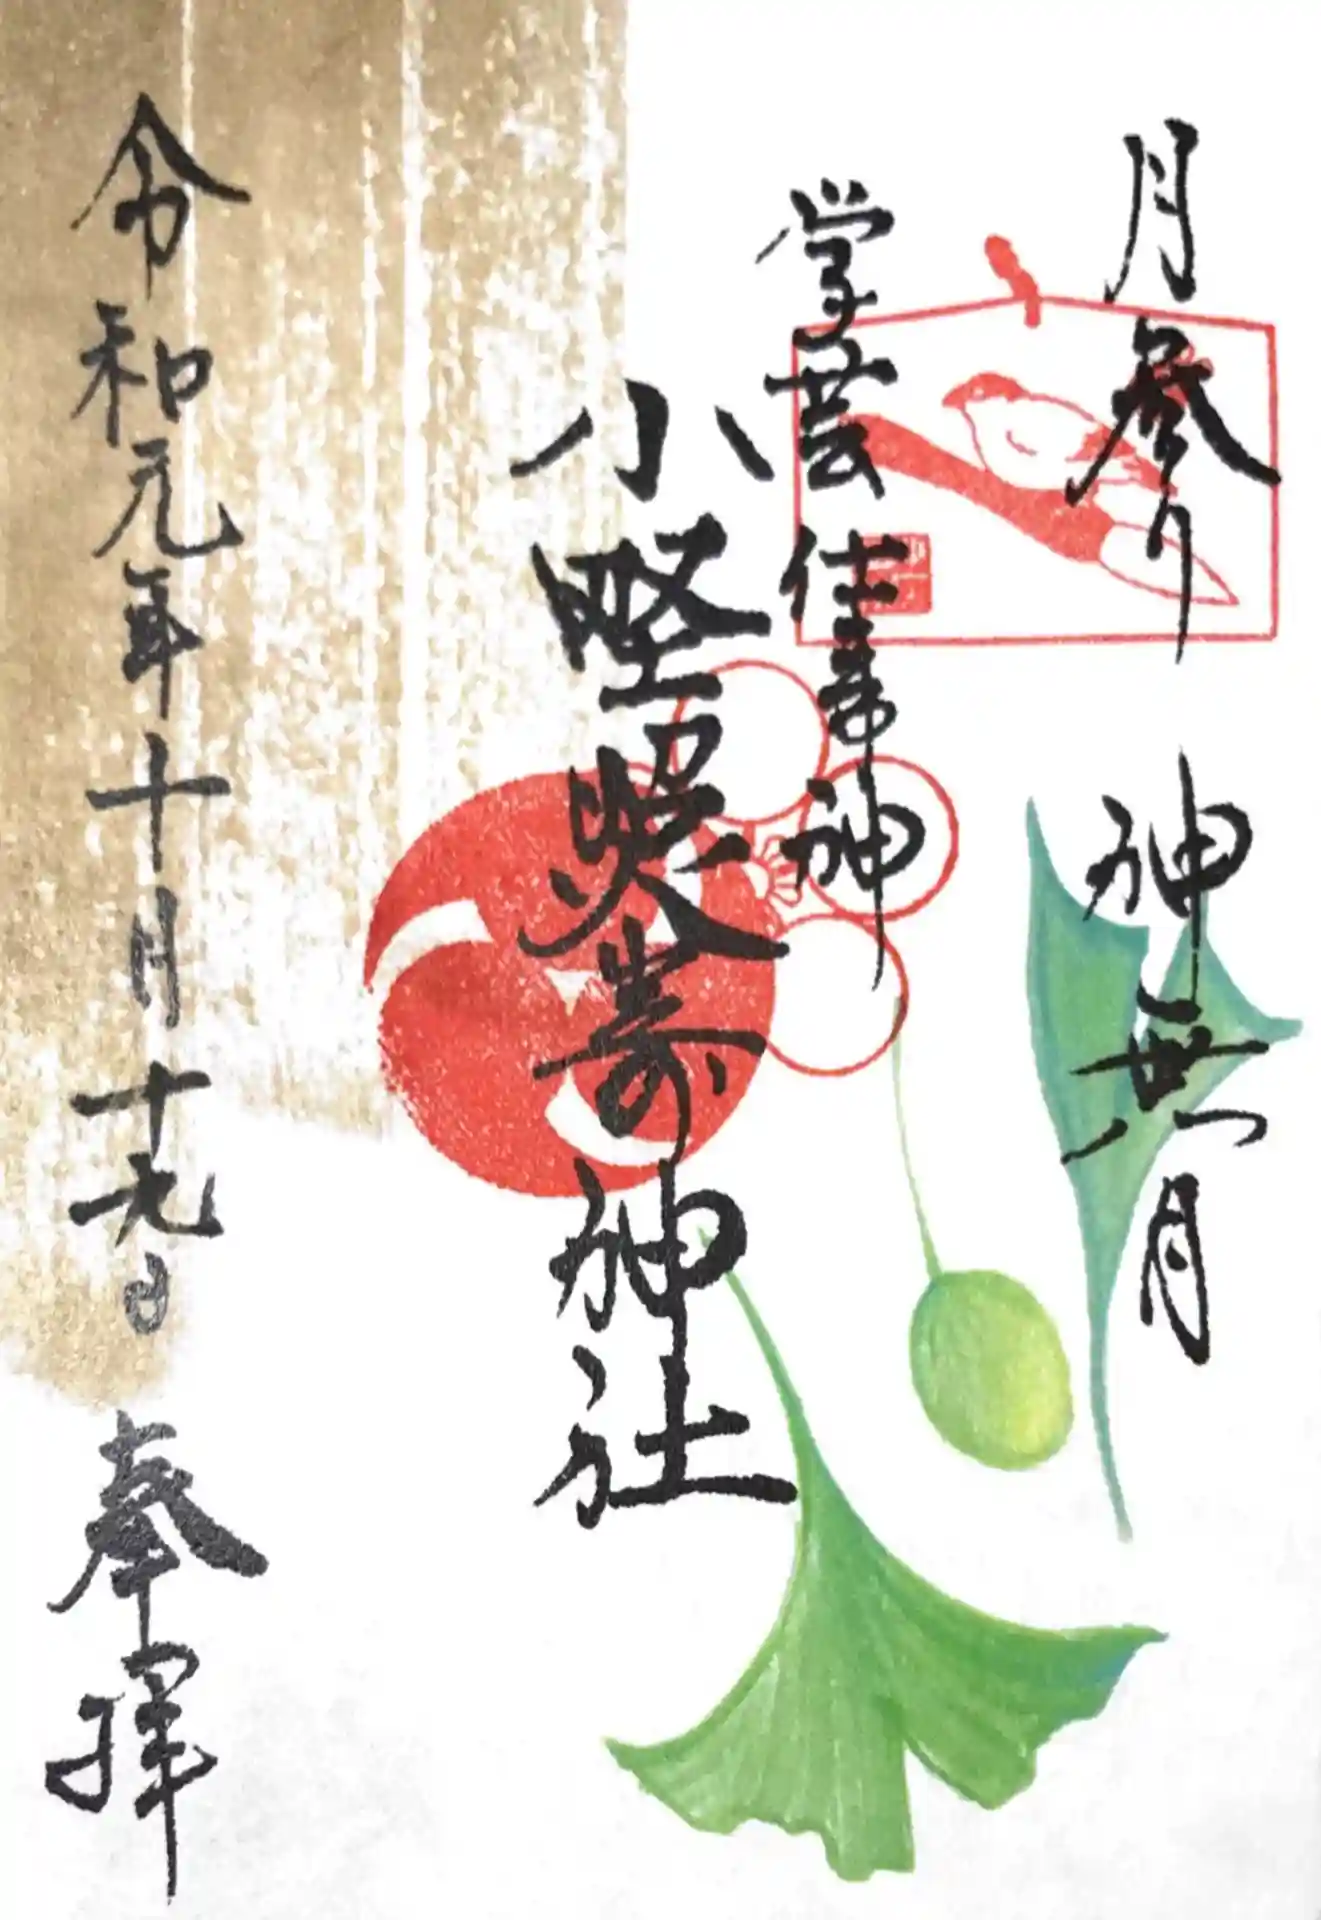 月参り 神無月
学芸
神
小野照崎神社
令和元年十月十九日 奉拝